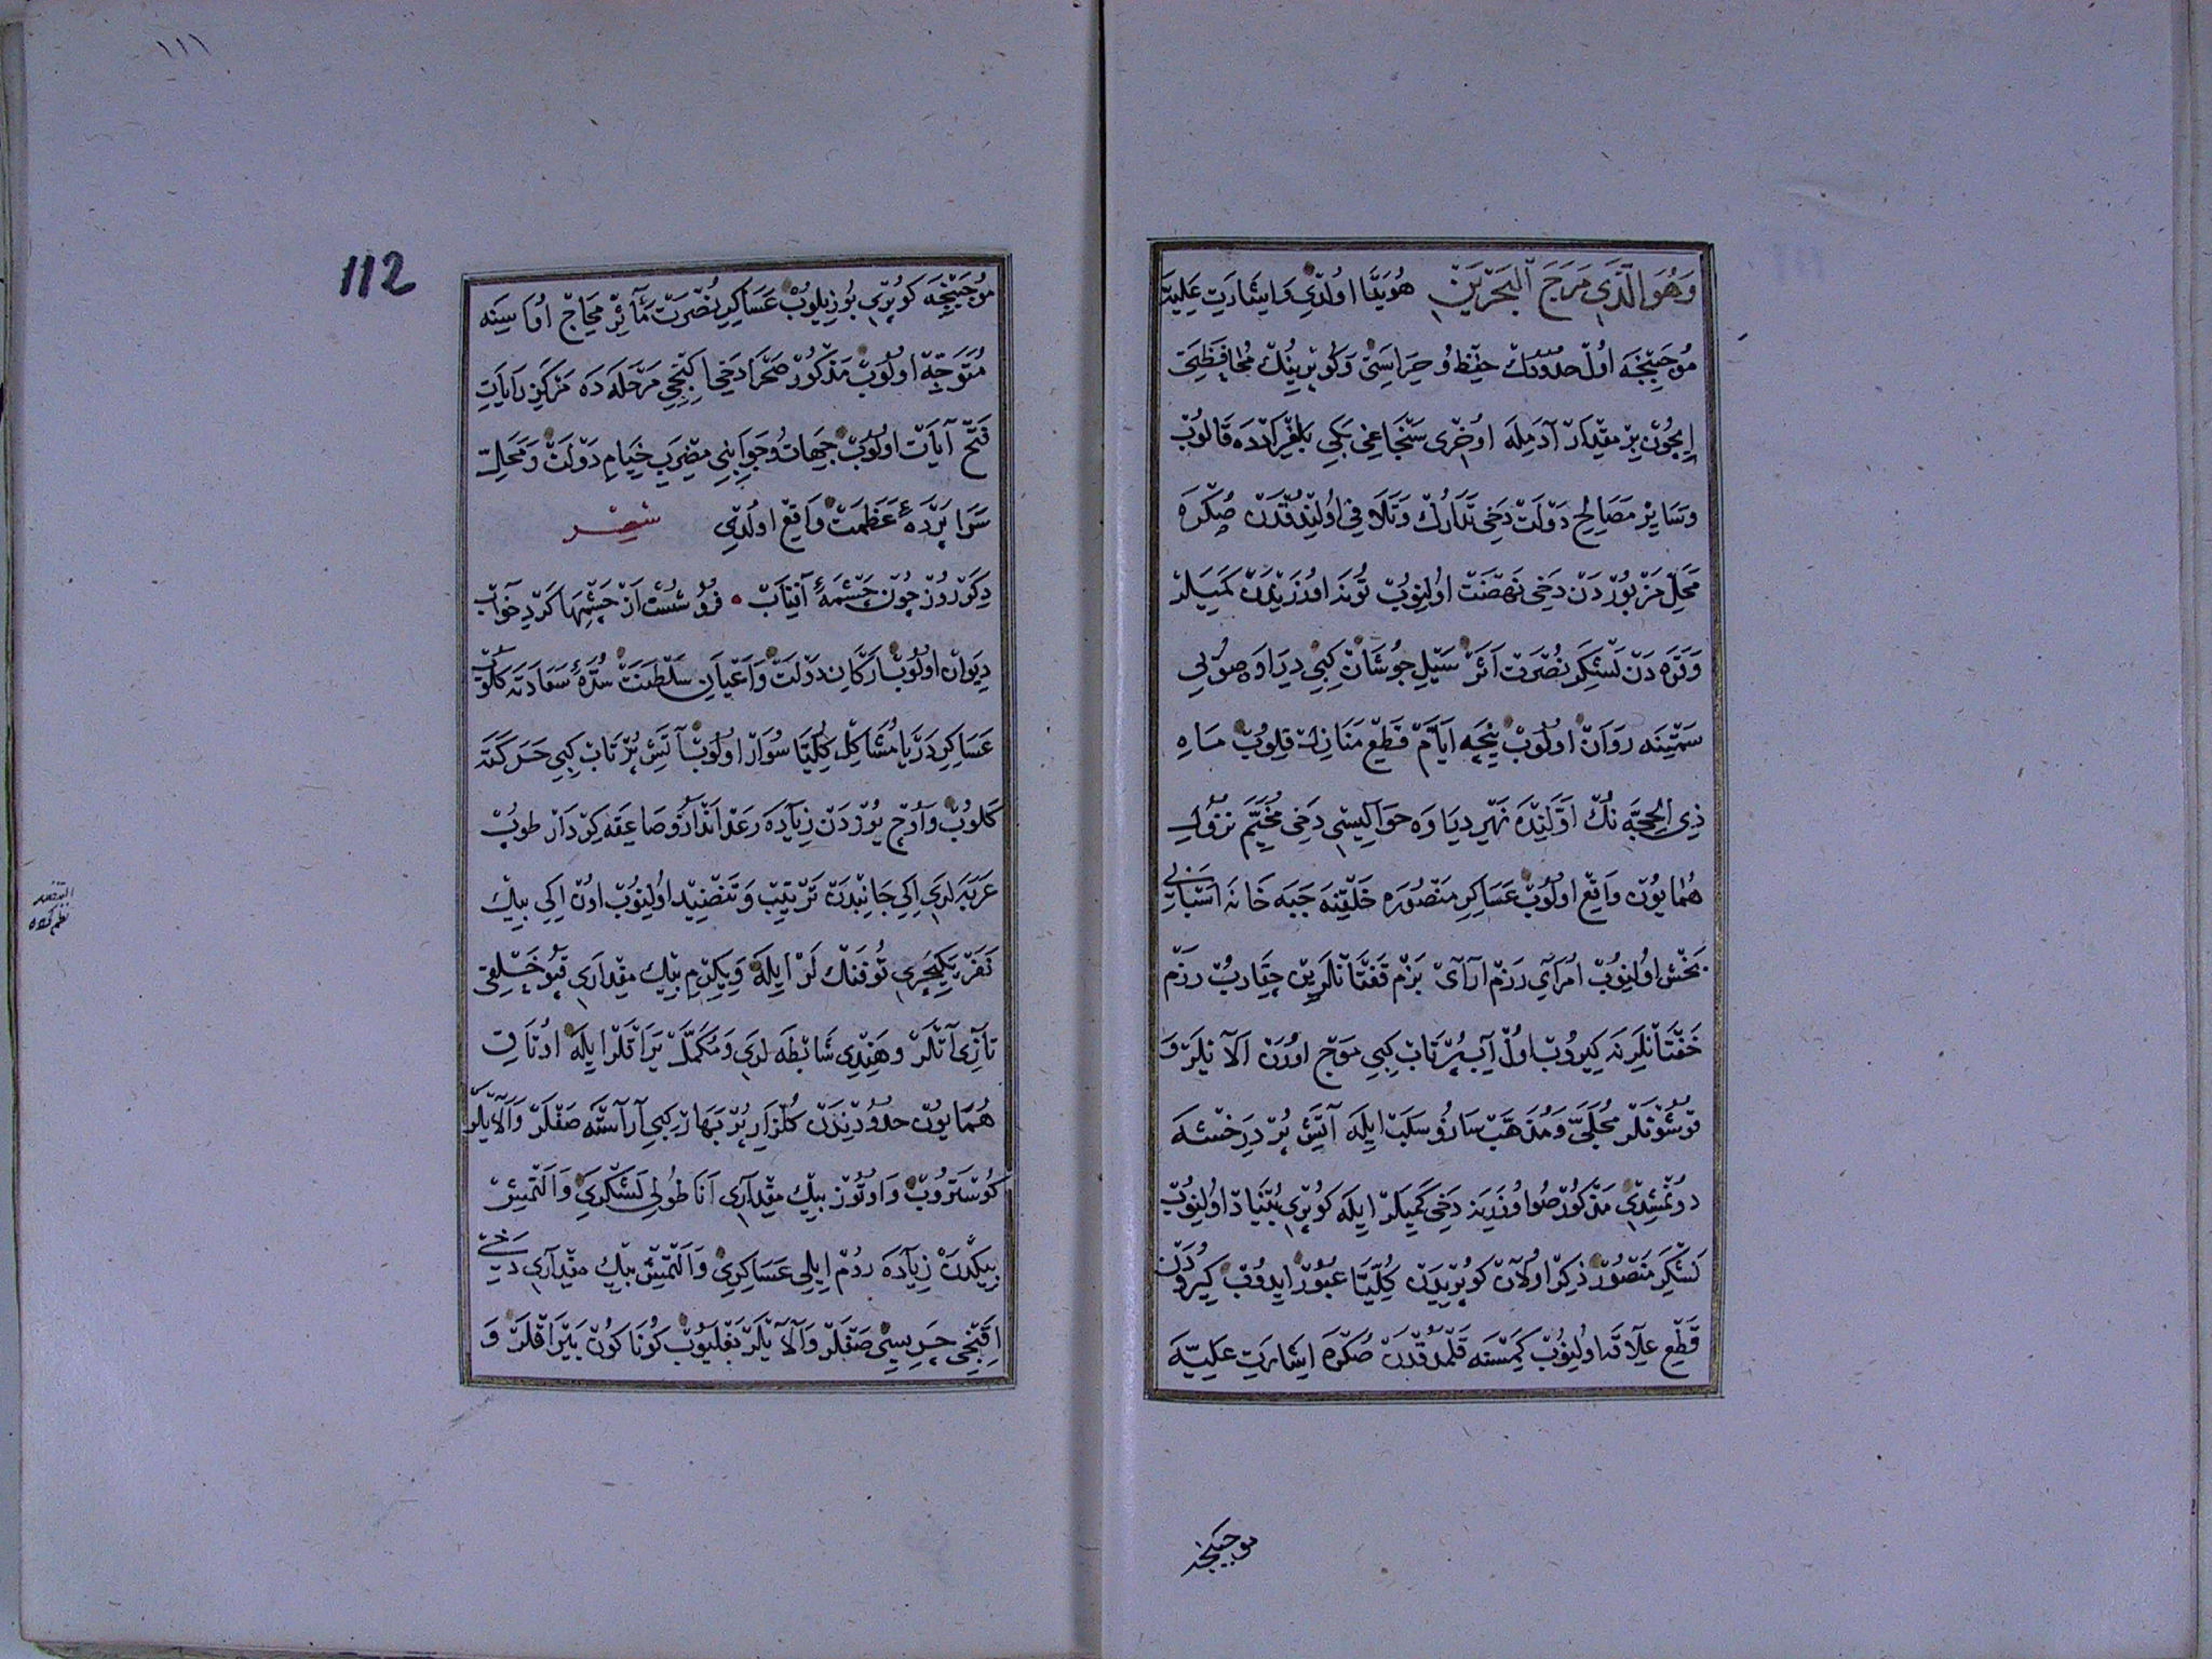 وَهُوَ الَّذِي مَرَجَ الْبَحْرَيْنِ هُوَيْدَا اولدي و اشارت علیه
موجبنجه اول حدودك حفظ و حراستی و كوپرینك محافظه‌سی
ایچون بر مقدار آدمیله اوخری سنجاغی بكی بلغراده قالوب
وسایر مصالح دولت دخی تدارك وتلافی اولندقدن صكره
محل مزبوردن دخی نهضت اولنوب تونه اوزرندن كمیلر
وقره دن لشكر نصرت اثر سیل جوشان كبی دراوه صویی
سمتینه روان اولوب نیچه ایام قطع منازل قلوب ماه
ذی الحجه نك اولنده نهر دراوه حوالیسی دخی مخیم نزول
همایون واقع اولوب عساكر منصوره خلقنه جبه خانه اسبابی
بخش اولنوب امرای رزم آرای بزم قفتانلرین چقاروب رزم
خفتانلرینه كیروب اول آب پرتاب كبی موج اوران الایلر و
قوشونلر محلی و مذهب ساز و سلب ایله آتش پر درخشه
دونمشدی مذكور صو اوزرینه دخی كمیلر ایله كوپری بنیاد اولنوب
لشكر منصور ذكر اولان كوپریدن كلیتا عبور ایدوب كیرودن
قطع علاقه اولنوب كیمسنه قلمدقدن صكره اشارت علیه
موجبنجه
١١١
112
موجبنجه كوپری بوزیلوب عساكر نصرت مآثر محاج اواسینه
متوجه اولوب مذكور صحرا دخی ایكنجی مرحله ده مركز رایات
فتح آیات اولوب جهات و جوانبی مضرب خیام دولت و محل
سراپردهٔ عظمت واقع اولدی شعر
دكر روز چون چشمهٔ آفتاب ٠ فرو شست از چشمها كرد خواب
دیوان اولوب اركان دولت و اعیان سلطنت سدهٔ سعادته كلوب
عساكر دریا مشاكل كلیتا سوار اولوب آتش پرتاب كبی حركته
كلوب و اوچ یوزدن زیاده رعد انداز و صاعقه كردار طوپ
عربه لری ایكی جانبدن ترتیب و تنضید اولنوب اون ایكی بیك
نفر یكیچری توفنك لر ایله و یكرم بیك مقداری قپو خلقی
تازی آتلر و هندی شاطه لری و مكمل یراقلر ایله اوتاق
همایون حدودندن كلزار پر بهار كبی آراسته صفلر و آلایلر
كوستروب و اوتوز بیك مقداری اناطولی لشكری و التمش
بیكدن زیاده روم ایلی عساكری و التمش بیك مقداری دخی
اقنجی چریسی صفلر و آلایلر بغلیوب كوناكون یراقلر و